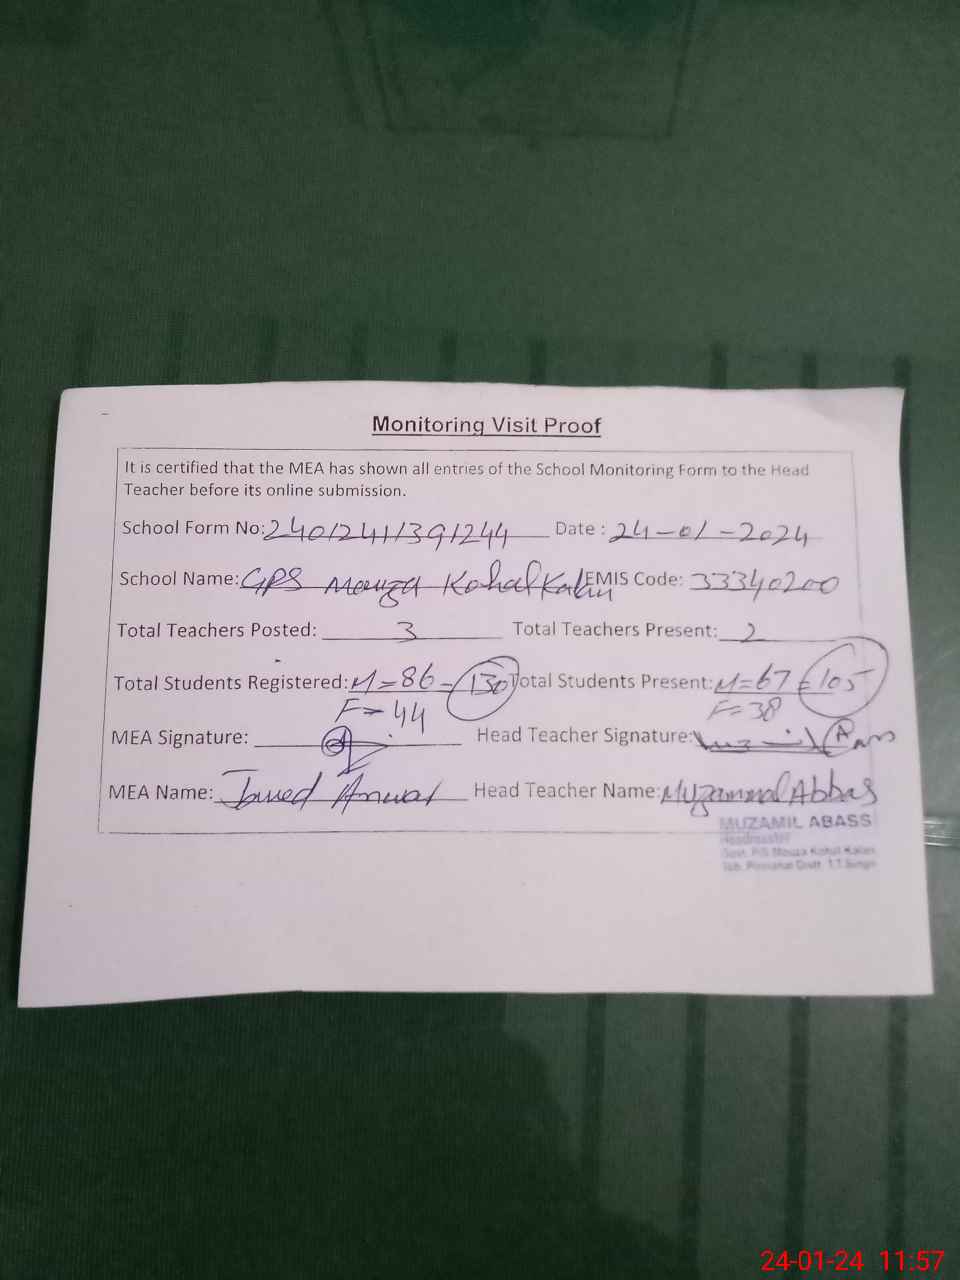 Monitoring Visit Proof
It is certified that the MEA has shown all entries of the School Monitoring Form to the Head
Teacher before its online submission.
School Form No: 24012411391244 Date : 24-01-2024
School Name: GPS Mauza Kohal Kalan EMIS Code: 33340200
Total Teachers Posted: 3 Total Teachers Present: 2
Total Students Registered: M=86 - 130 Total Students Present: M=67 = 105
F=44 F=38
MEA Signature: Head Teacher Signature:
MEA Name: Javed Anwar Head Teacher Name: Muzammal Abbas
MUZAMIL ABASS
Headmaster
Govt. P/S Mouza Kohal Kalan
24-01-24 11:57